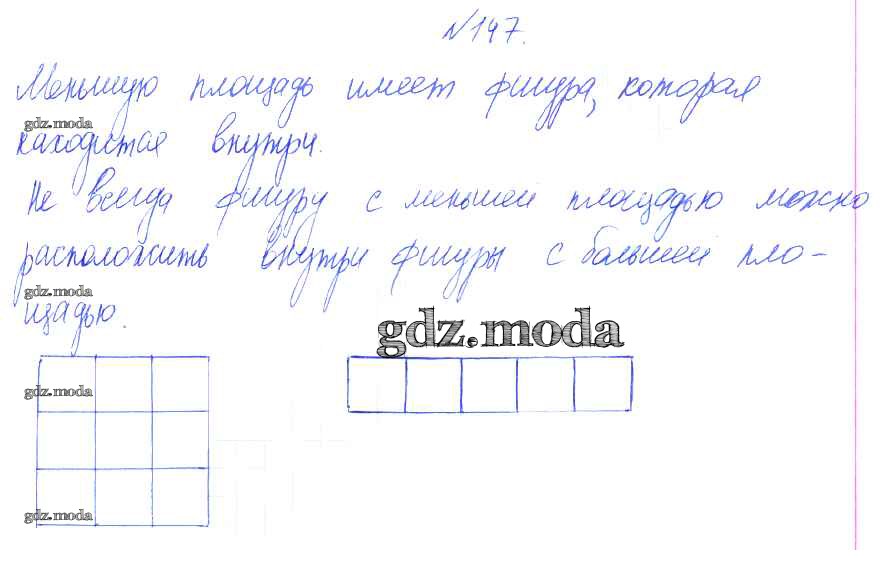 №147.
Меньшую площадь имеет фигура, которая
gdz.moda
находится внутри.
Не всегда фигуру с меньшей площадью можно
расположить внутри фигуры с большей пло-
gdz.moda
щадью.
gdz.moda
gdz.moda
gdz.moda